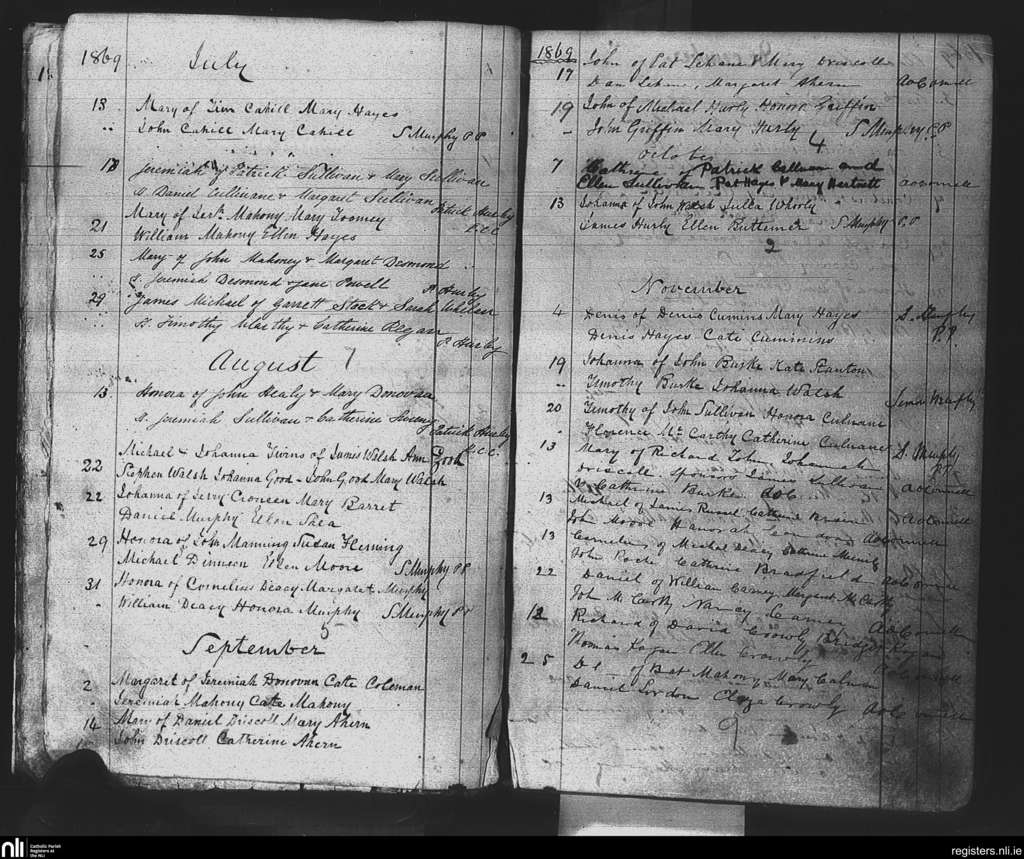 1869 July
13 Mary of Tim Cahill Mary Hayes
" John Cahill Mary Cahill S Murphy PP
18 Jeremiah of Patrick Sullivan & Mary Sullivan
s. Daniel Cullinane & Margaret Sullivan Patrick Hurley
C.C.
21 Mary of Jerh. Mahony Mary Toomey
William Mahony Ellen Hayes
25 Mary of John Mahoney & Margaret Desmond
s. Jeremiah Desmond & Jane Powell P. Hurley
29 James Michael of Garrett Stack & Sarah Whelan
s. Timothy McCarthy & Catherine Regan
P Hurley
August 7
13 Honora of John Healy & Mary Donovan
s. Jeremiah Sullivan & Catherine
Patrick Hurley
C.C.
Michael & Johanna Twins of James Walsh Ann Good
22 Stephen Walsh Johanna Good - John Good Mary Walsh
22 Johanna of Jerry Croneen Mary Barret
Daniel Murphy Ellen Shea
29 Honora of John Manning Susan Fleming
Michael Dinneen Ellen Moore S Murphy PP
31 Honora of Cornelius Deacy Margaret Murphy
" William Deacy Honora Murphy S Murphy PP
5
September
2 Margaret of Jeremiah Donovan Cate Coleman
Jeremiah Mahony Cate Mahony
14 Mary of Daniel Driscoll Mary Ahern
John Driscoll Catherine Ahern
1869 John of Pat Lehane & Mary Driscoll
17 Dan Lehane, Margaret Ahern AoConnell
19 John of Michael Hurly Honora Griffin
John Griffin Mary Hurly S Murphy P.P
4
October
7 Catherine of Patrick Cullinan and
Ellen Sullivan Pat Hayes & Mary Hartnett AoConnell
13 Johanna of John Walsh Julia Whooly
James Hurly Ellen Buttimer S Murphy P.P
2
November
4 Denis of Denis Cumins Mary Hayes S. Murphy
Denis Hayes Cate Cummins P.P.
19 Johanna of John Burke Kate Stanton
" Timothy Burke Johanna Walsh
20 Timothy of John Sullivan Honora Culnane
Florence McCarthy Catherine Culnane S. Murphy
P.P.
13 Mary of Richard Johanna
Driscoll Sponsors James Sullivan AoConnell
& Catherine Burke
13 Michael of James Russel Catherine AoConnell
John Moore Hanorah AoConnell
13 Cornelius of Michel Deacy Catherine
John Roche Catherine Bradfield AoConnell
22 Daniel of William Carney Margaret McCarthy
John McCarthy Nancy Carney AoConnell
12 Richard of David Crowly Bridget Regan
Ellen Crowly
25 of Bat Mahony Mary Calnan
Daniel Crowly AoConnell
9
nli
Catholic Parish
Registers at
the NLI
registers.nli.ie